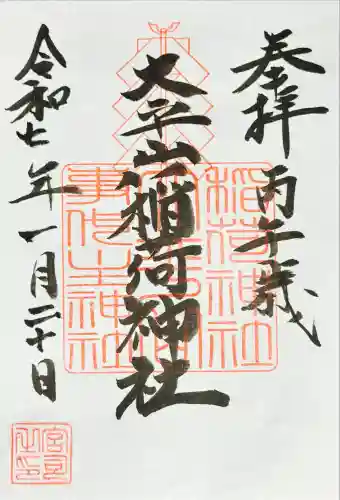 奉拝 丙午歳
大平山稲荷神社
令和七年一月二十日
稲荷神社
事代主神社
宮司之印